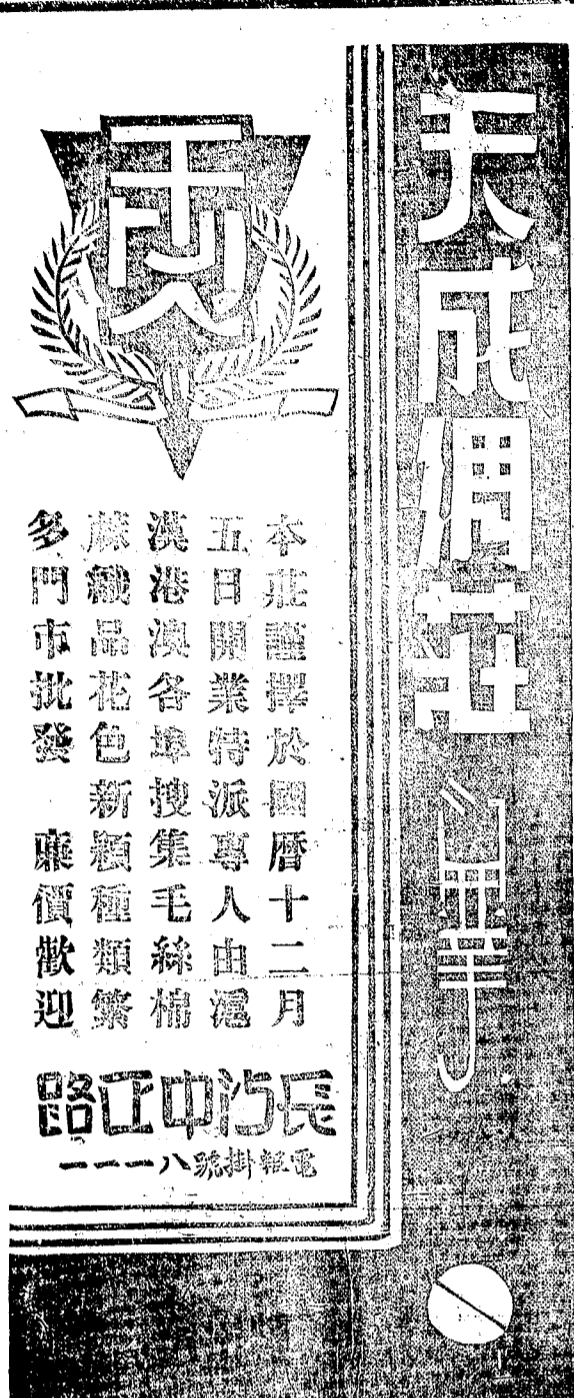 天成綢莊
本莊謹擇於國曆十二月
五日開業特派專人由滬
漢港澳各埠搜集毛絲棉
蔴織品花色新穎種類繁
多門市批發 廉價歡迎
長沙中正路
電報掛號八一一一